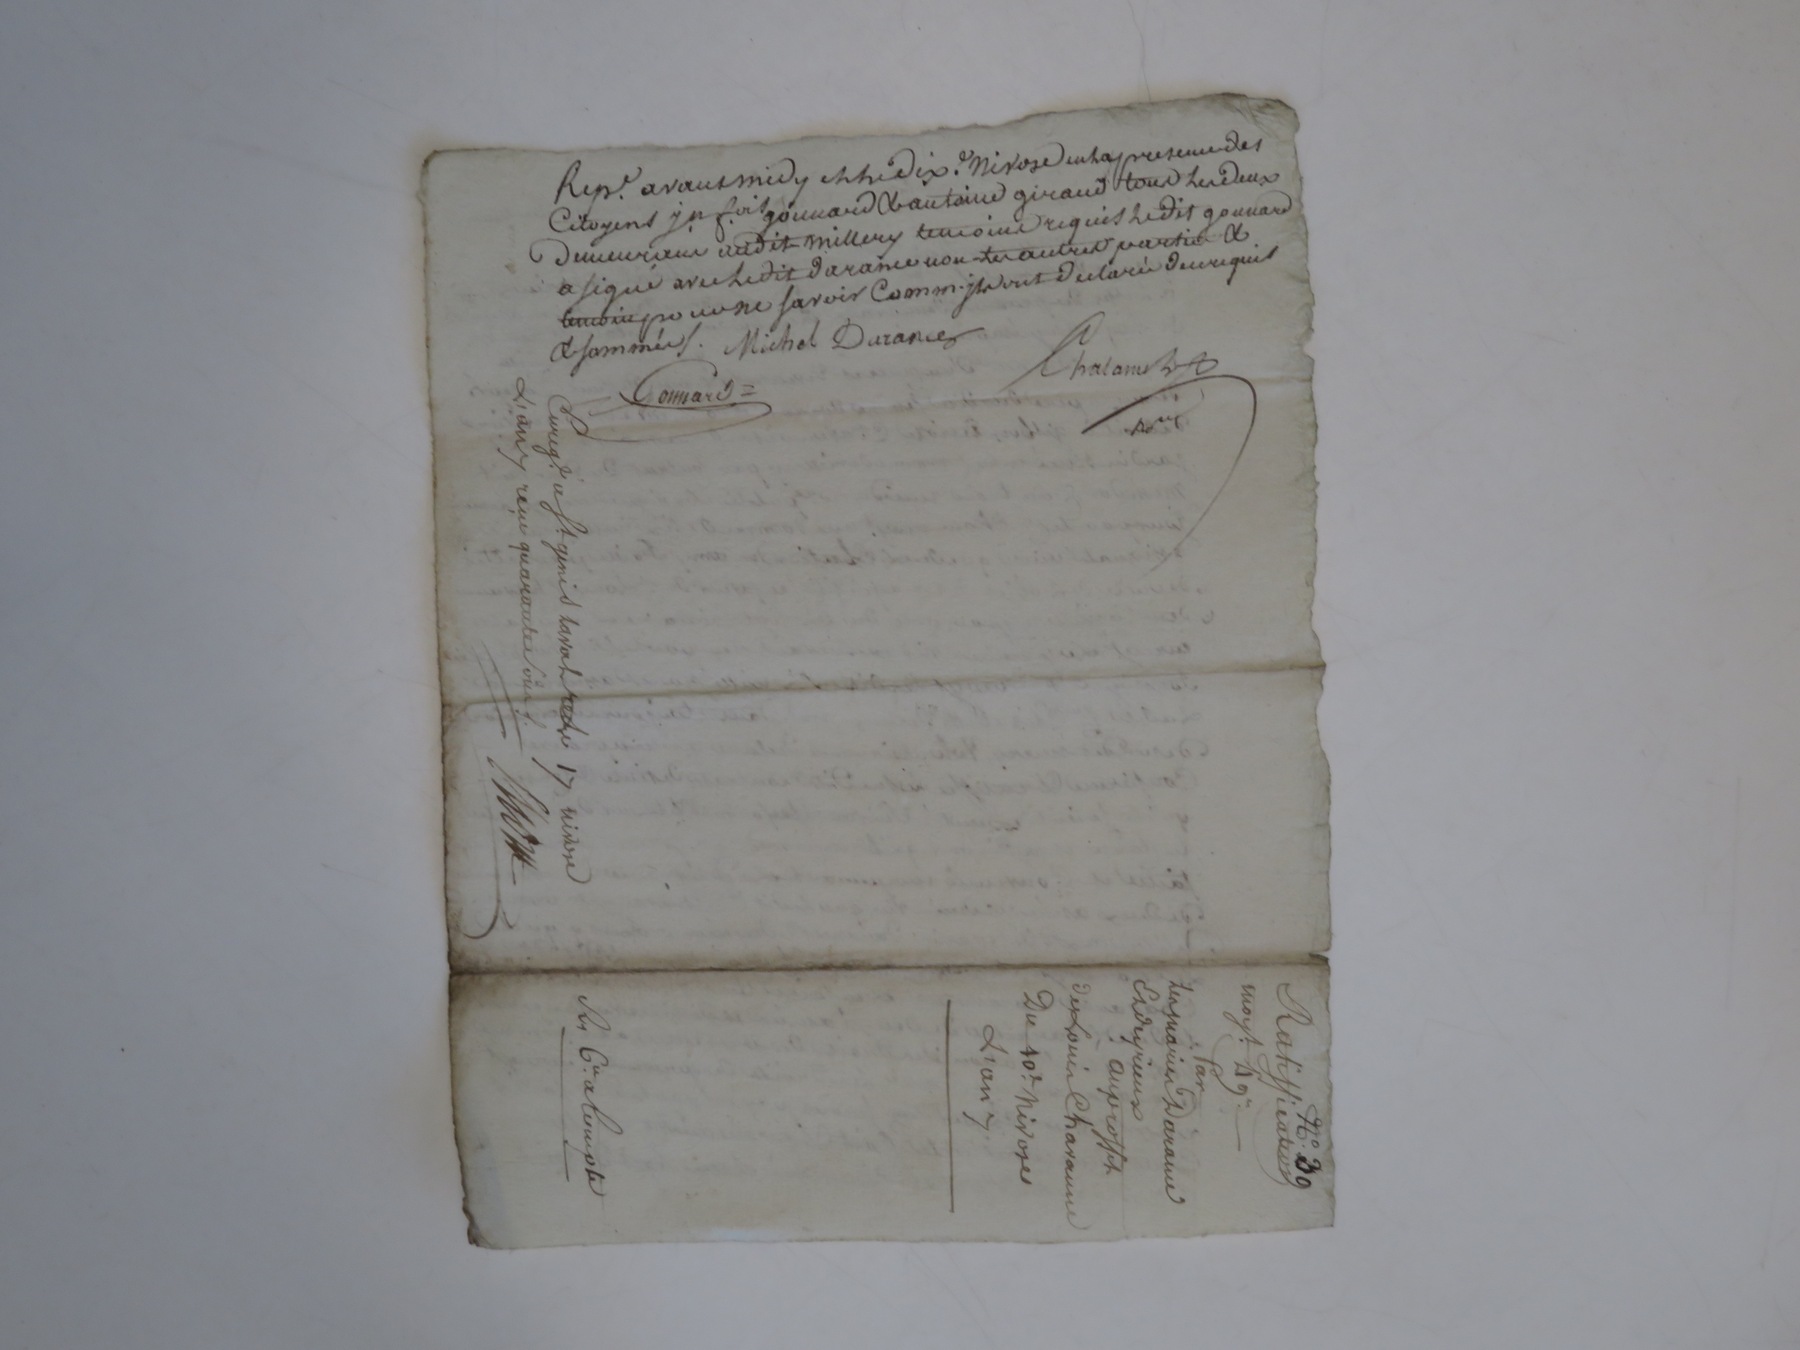 Repe. avant midy et le dix.e Nivose en la presence des
Citoyens jn. fois gonnard & antoine giraud tous les deux
Demeurant audit millery temoins requis le dit gonnard
a signé avec le dit Darance non les autres parties &
temoin pour ne savoir Comm. ils ont declaré de ce requis
& sommés. Michel Durance
Chalame
Gonnard
Nore
Enregt. a st. genis laval le 17 nivose
L'an 7 reçu quarante
No. 39
Ratiffication
moyt.
Par
Les mariés Darance
Et
Au proffit
de Louis Charanne
Du 10e. Nivose
L'an 7.